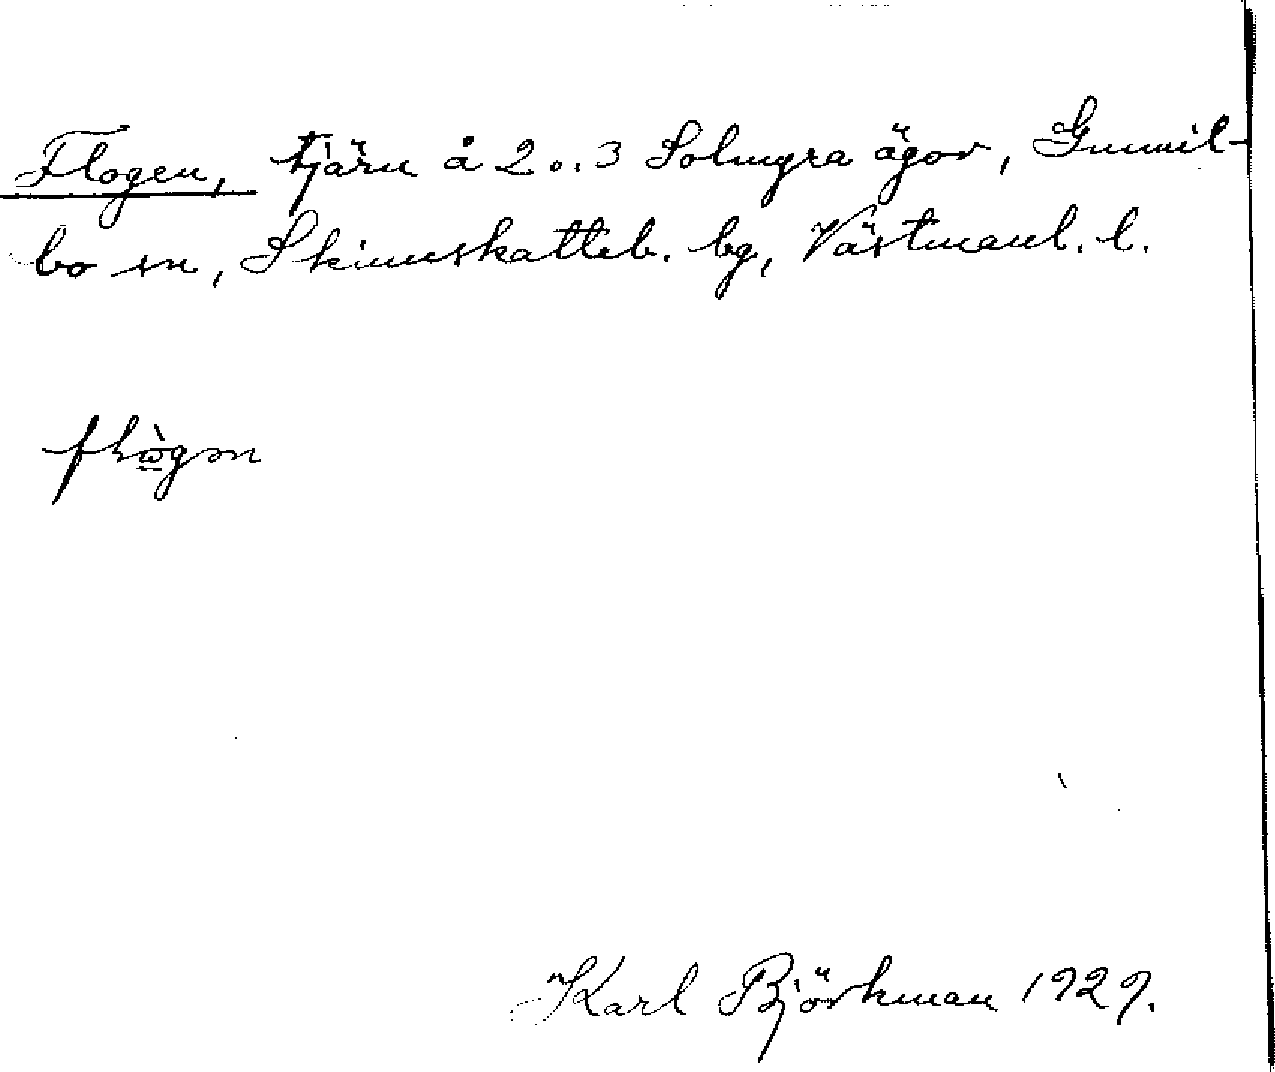 Flogen, tjärn å 2 o. 3 Solmyra ägor, Gunnil-
bo sn, Skinnskatteb. bg, Västmanl. l.
Karl Björkman 1929.